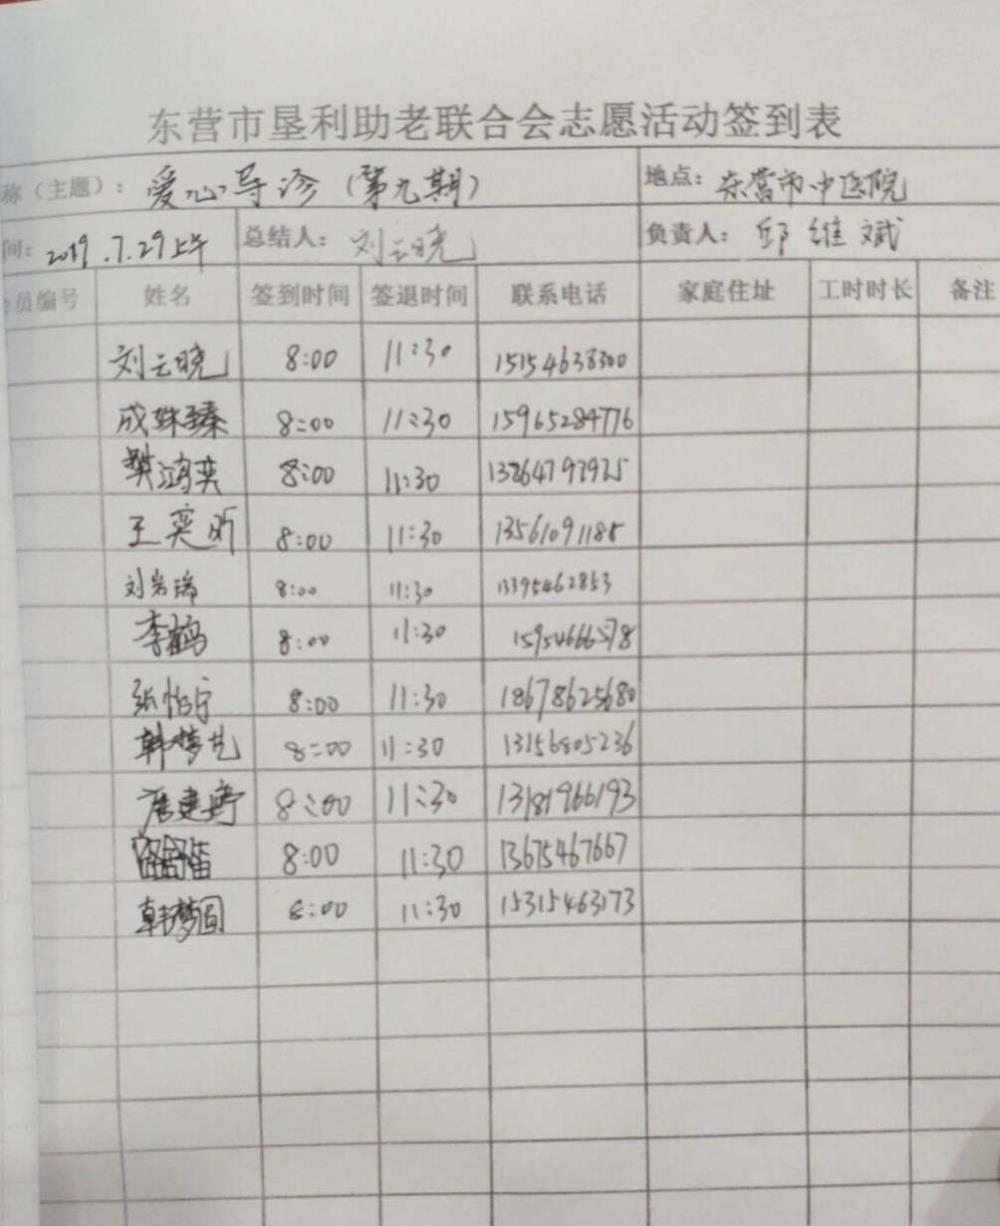 东营市垦利助老联合会志愿活动签到表
称（主题）：爱心导诊（第九期） 地点：东营市中医院
间：2019.7.29上午 总结人：刘云晓 负责人：邱维斌
员编号 姓名 签到时间 签退时间 联系电话 家庭住址 工时时长 备注
刘云晓 8:00 11:30 15154638300
成姝臻 8:00 11:30 15965284776
樊鸿奕 8:00 11:30
王奕昕 8:00 11:30 13561091185
刘岩瑞 8:00 11:30 13395462853
李鹤 8:00 11:30 15954666578
张怡宁 8:00 11:30 18678625680
韩梦艺 8:00 11:30 13156805236
8:00 11:30 13181966193
8:00 11:30 13675467667
韩梦圆 8:00 11:30 15315463173